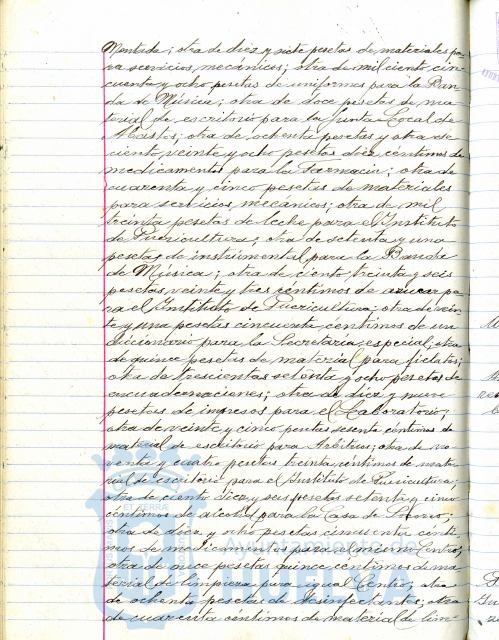 Montada; otra de diez y siete pesetas de materiales pa-
ra servicios mecánicos; otra de mil ciento cin-
cuenta y ocho pesetas de uniformes para la Ban-
da de Música; otra de doce pesetas de ma-
terial de escritorio para la Junta Local de
otra de ochenta pesetas y otra de
ciento veinte y ocho pesetas diez céntimos de
medicamentos para la Farmacia; otra de
cuarenta y cinco pesetas de materiales
para servicios mecánicos; otra de mil
treinta pesetas de leche para el Instituto
de Puericultura; otra de setenta y una
pesetas de instrumental para la Banda
de Música; otra de ciento treinta y seis
pesetas veinte y tres céntimos de azucar pa-
ra el Instituto de Puericultura; otra de vein-
te y una pesetas cincuenta céntimos de un
diccionario para la Secretaria especial; otra
de quince pesetas de material para fielatos;
otra de trescientas setenta y ocho pesetas de
encuadernaciones; otra de diez y nueve
pesetas de impresos para el Laboratorio;
otra de veinte y cinco pesetas sesenta céntimos de
material de escritorio para Arbitrios; otra de no-
venta y cuatro pesetas treinta céntimos de mate-
rial de escritorio para el Instituto de Puericultura;
otra de ciento diez y seis pesetas setenta y cinco
céntimos de alcohol para la Casa de Socorro;
otra de diez y ocho pesetas cincuenta cénti-
mos de medicamentos para el mismo Centro;
otra de once pesetas quince céntimos de ma-
terial de limpieza para igual Centro; otra
de ochenta pesetas de desinfectantes; otra
de cuarenta céntimos de material de lim-
Ayuntamiento de
HUELVA